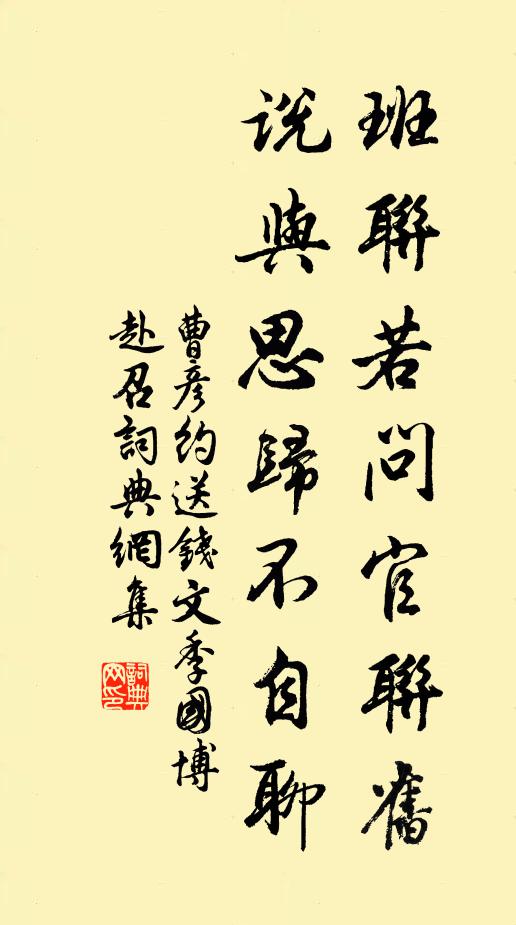 班聯若問官聯舊
說與思歸不自聊
曹彥約送錢文季國博
赴召詞典網集
詞典網印